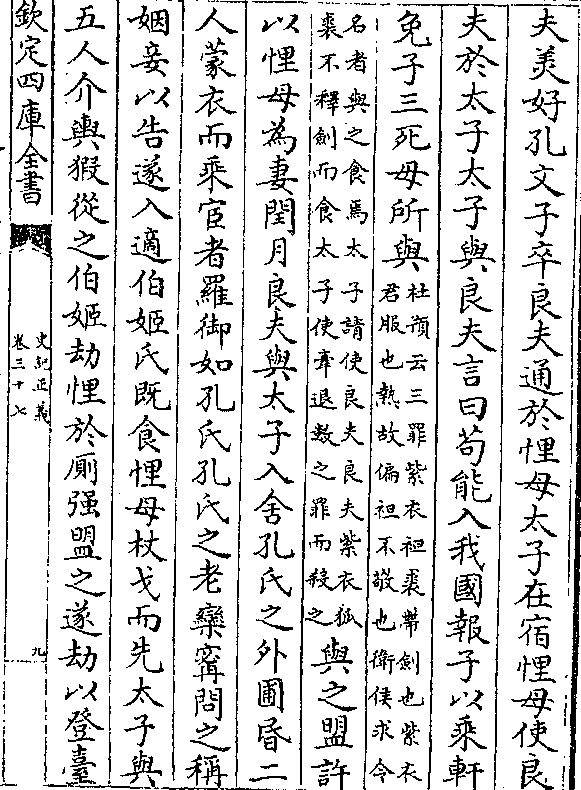 夫美好孔文子卒良夫通於悝母太子在宿悝母使良
夫於太子太子與良夫言曰苟能入我國報子以乘軒
免子三死毋所與
杜預云三罪紫衣袒裘帶劍也紫衣
君服也熱故偏袒不敬也衛侯求令
名者與之食焉太子請使良夫良夫紫衣狐
裘不釋劍而食太子使牽退數之罪而殺之
與之盟許
以悝母為妻閏月良夫與太子入舍孔氏之外圃昏二
人蒙衣而乘宦者羅御如孔氏孔氏之老欒寗問之稱
姻妾以告遂入適伯姬氏既食悝母杖戈而先太子與
五人介輿猳從之伯姬劫悝於厠强盟之遂劫以登臺
欽定四庫全書
史記正義
卷三十七
九